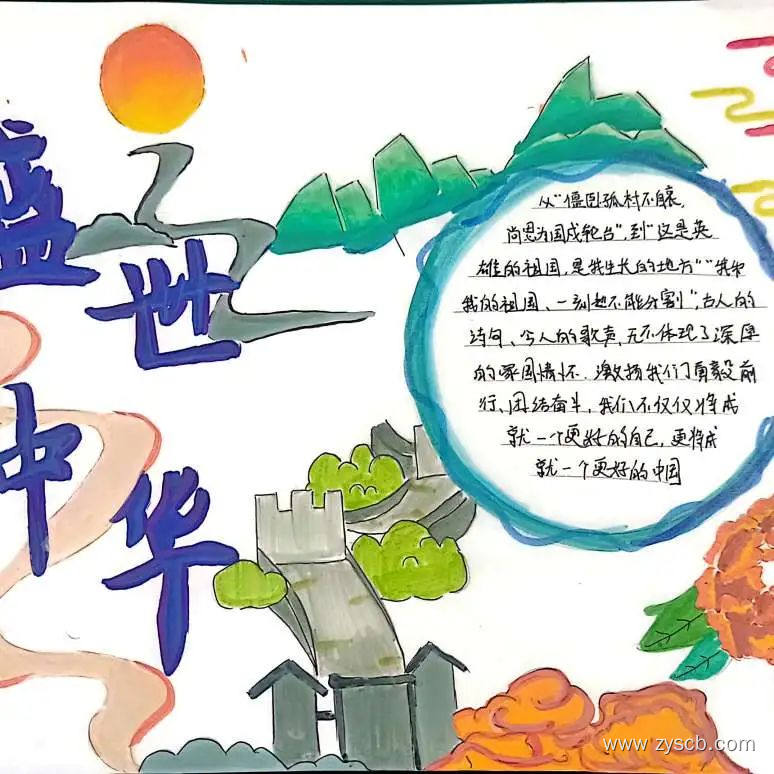 盛世
中华
从“僵卧孤村不自哀，
尚思为国戍轮台”，到“这是英
雄的祖国，是我生长的地方”“我和
我的祖国、一刻也不能分割”，古人的
诗句、今人的歌声，无不体现了深厚
的家国情怀，激扬我们勇毅前
行、团结奋斗，我们不仅仅将成
就一个更好的自己，更将成
就一个更好的中国
www.zyscb.com